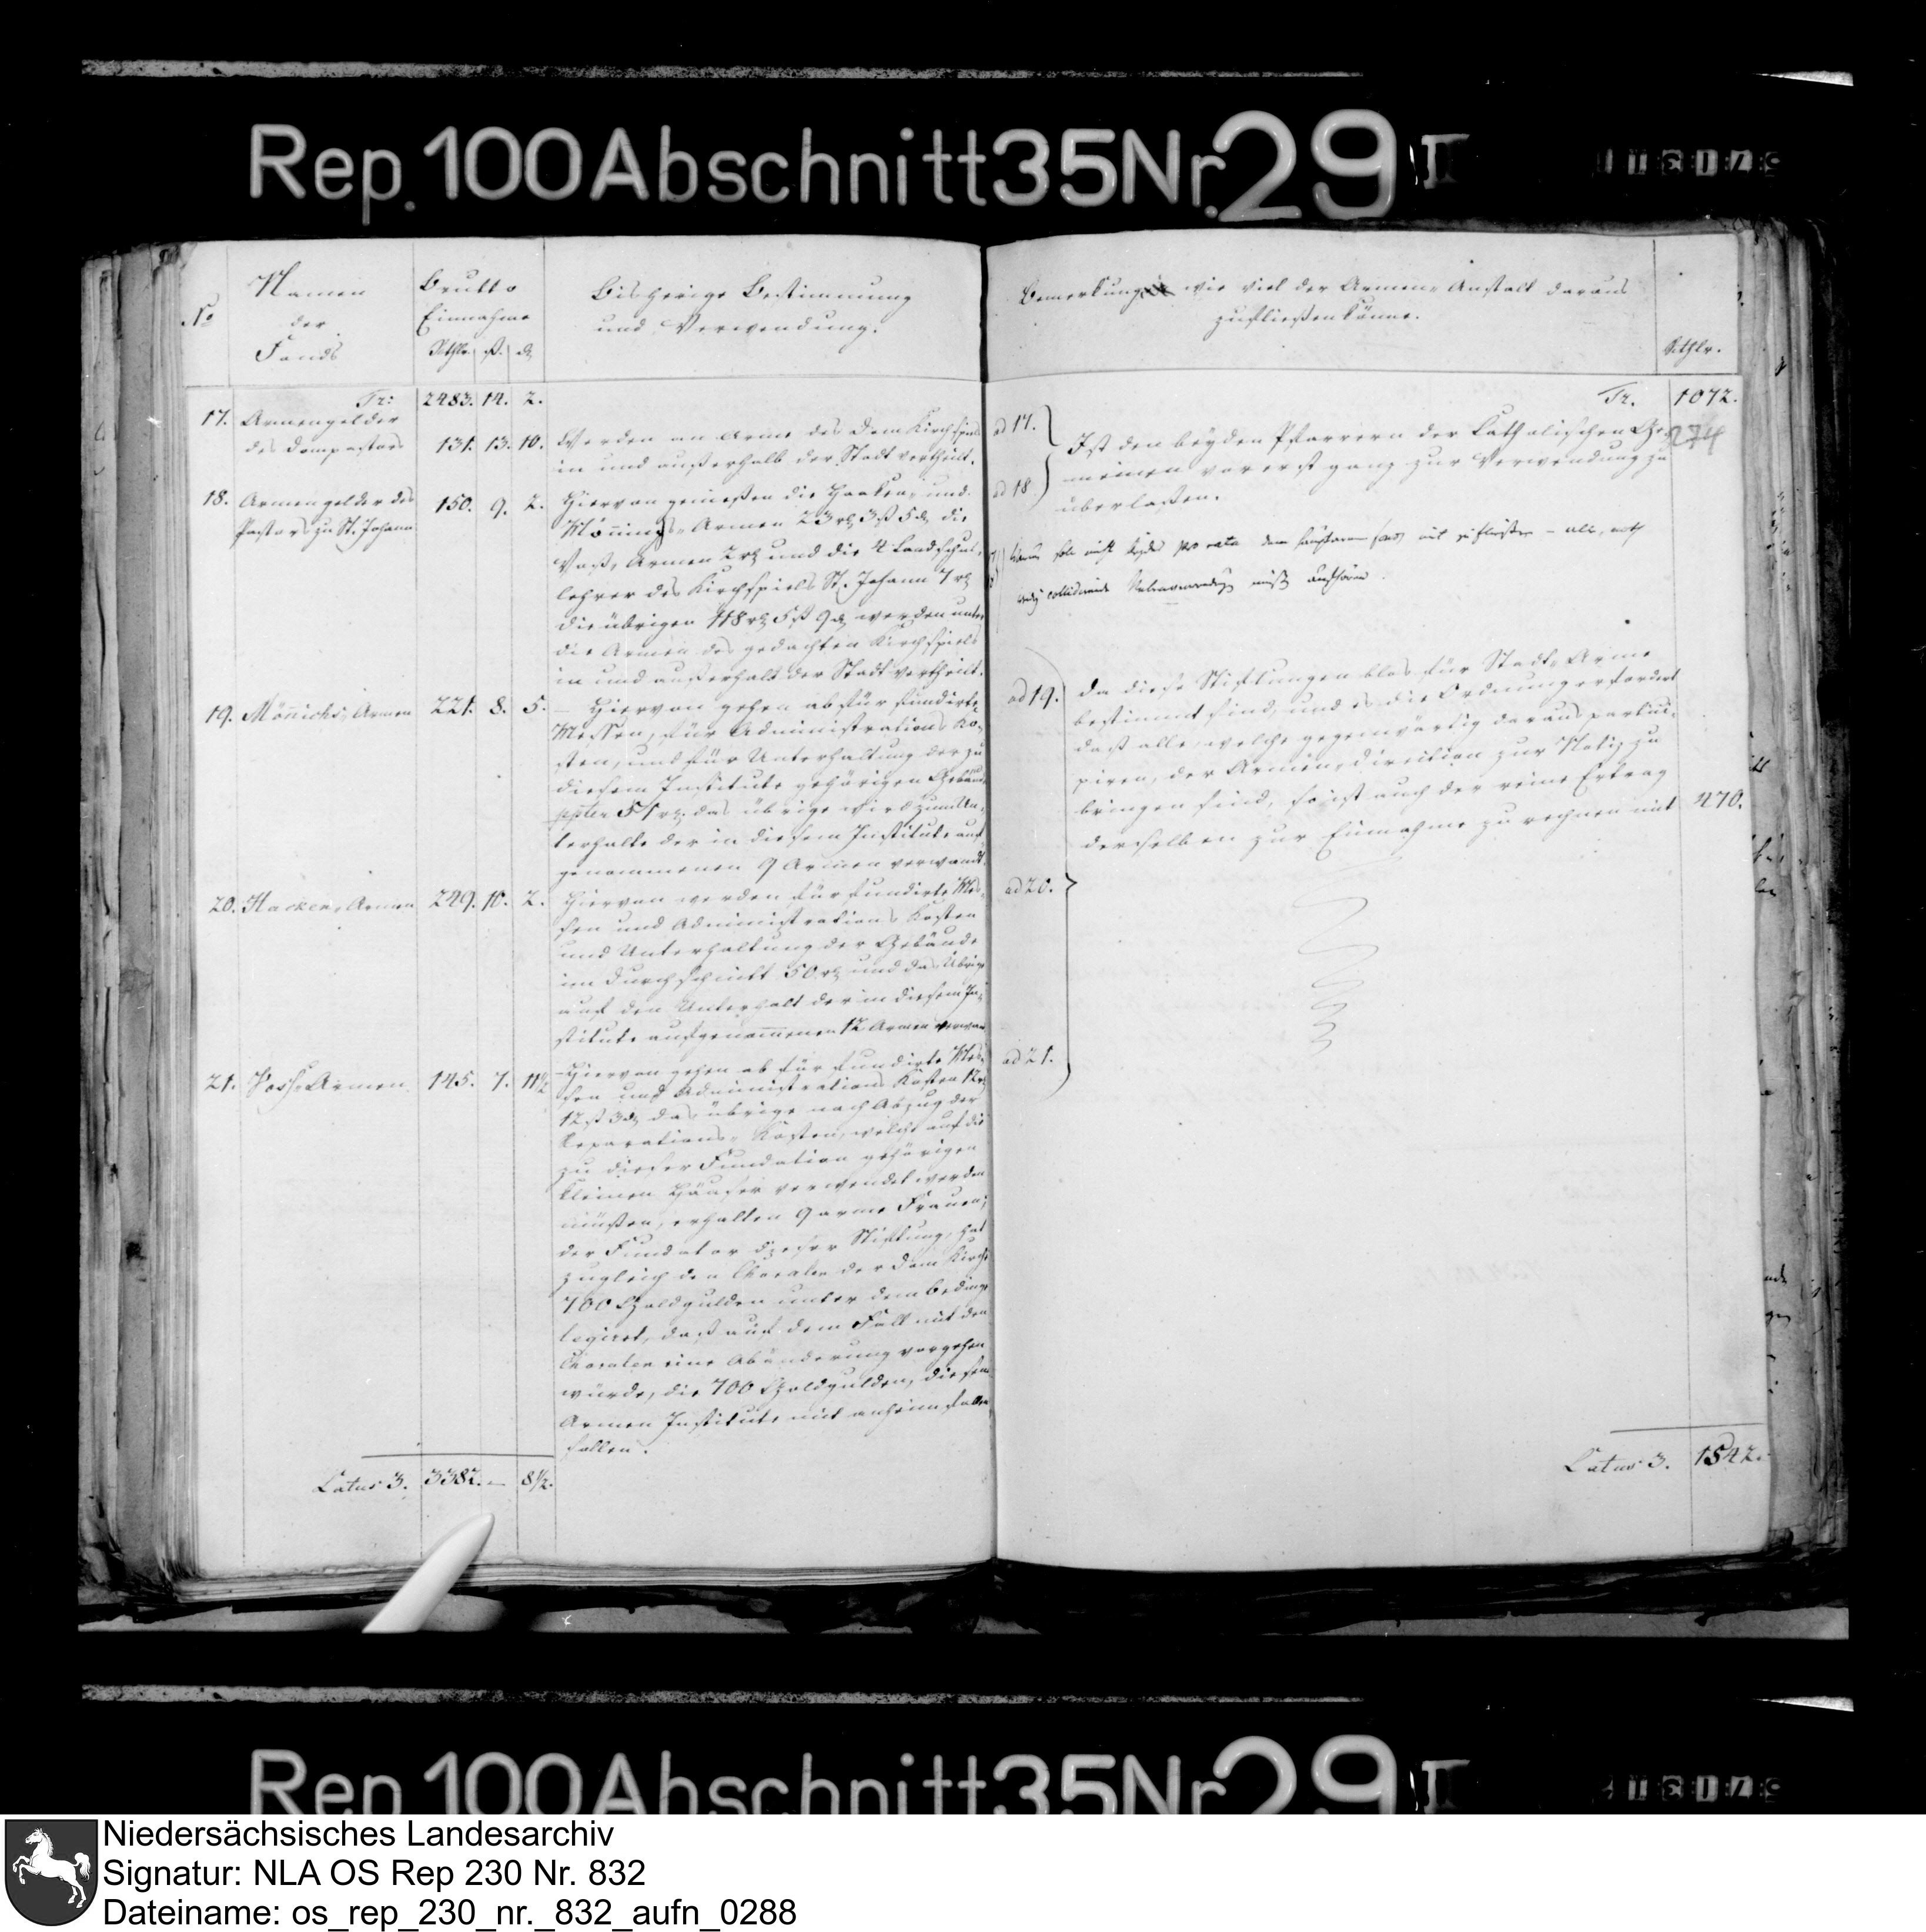 Rep. 100 Abschnitt 35 Nr. 29 I
No
Namen
der
Fonds
Brutto
Einnahme
Rthlr. ß. d.
Bisherige Bestimmung
und Verwendung.
Tr: 2483. 14. 2.
17. Armengelder
des Dompastors 131. 13. 10. Werden an Arme des Dom Kirchspiels
in und außerhalb der Stadt vertheilt.
18. Armengelder des
Pastors zu St. Johann 150. 9. 2. Hiervon genießen die Haaken- und
Mönnichs-Armen 23 rt 3 ß 5 d, die
Voß-Armen 2 rt und die 4 Landschul-
lehrer des Kirchspiels St. Johann 7 rt
die übrigen 118 rt 5 ß 9 d werden unter
die Armen des gedachten Kirchspiels
in und außerhalb der Stadt vertheilt.
19. Mönnichs-Armen 221. 8. 5. – Hiervon gehen ab für fundirte
Messen, für Administrations Ko-
sten, und für Unterhaltung der zu
diesem Institute gehörigen Gebäu-
51 rt. das übrige wird zum Un-
terhalte der in diesem Institute auf-
genommenen 9 Armen verwandt.
20. Hacken-Armen 249. 10. 2. Hiervon werden für fundirte Mes-
sen und Administrations Kosten
und Unterhaltung der Gebäude
im Durchschnitt 50 rt und das Übrige
auf den Unterhalt der in diesem In-
stitute aufgenommenen 12 Armen verwandt
21. Voss-Armen 145. 7. 11½ – Hiervon gehen ab für fundirte Mes-
sen und Administrations Kosten 12 rt
12 ß 3 d das übrige nach Abzug der
Reparations-Kosten, welche auf die
zu dieser Fundation gehörigen
kleinen Häuser verwendet werden
müßen, erhalten 9 arme Frauen;
der Fundator dieser Stiftung, hat
zugleich den Choralen der Dom Kirche
700 Goldgulden unter dem beding
legiret, daß auf dem Fall mit den
Choralen eine Abänderung vorgehen
würde, die 700 Goldgulden, diesem
Armen Institute mit anheim fallen
sollen.
Latus 3. 3382. – 8½.
Bemerkung wie viel der Armen-Anstalt daraus
zufließen könne.
Rthlr.
Tr. 1072.
274
ad 17.
ad 18
Ist den beyden Pfarrern der Catholischen Ge-
meinen vorerst ganz zur Verwendung zu
überlaßen.
ad 19. Da diese Stiftungen blos für Stadt-Arme
bestimmt sind, und es die Ordnung erfordert
daß alle, welche gegenwärtig daraus partici-
piren, der Armen-direction zur Notiz zu
bringen sind, so ist auch der reine Ertrag
derselben zur Einnahme zu rechnen mit 470.
ad 20.
ad 21.
Latus 3. 1542.
Rep. 100 Abschnitt 35 Nr. 29 I
Niedersächsisches Landesarchiv
Signatur: NLA OS Rep 230 Nr. 832
Dateiname: os_rep_230_nr._832_aufn_0288